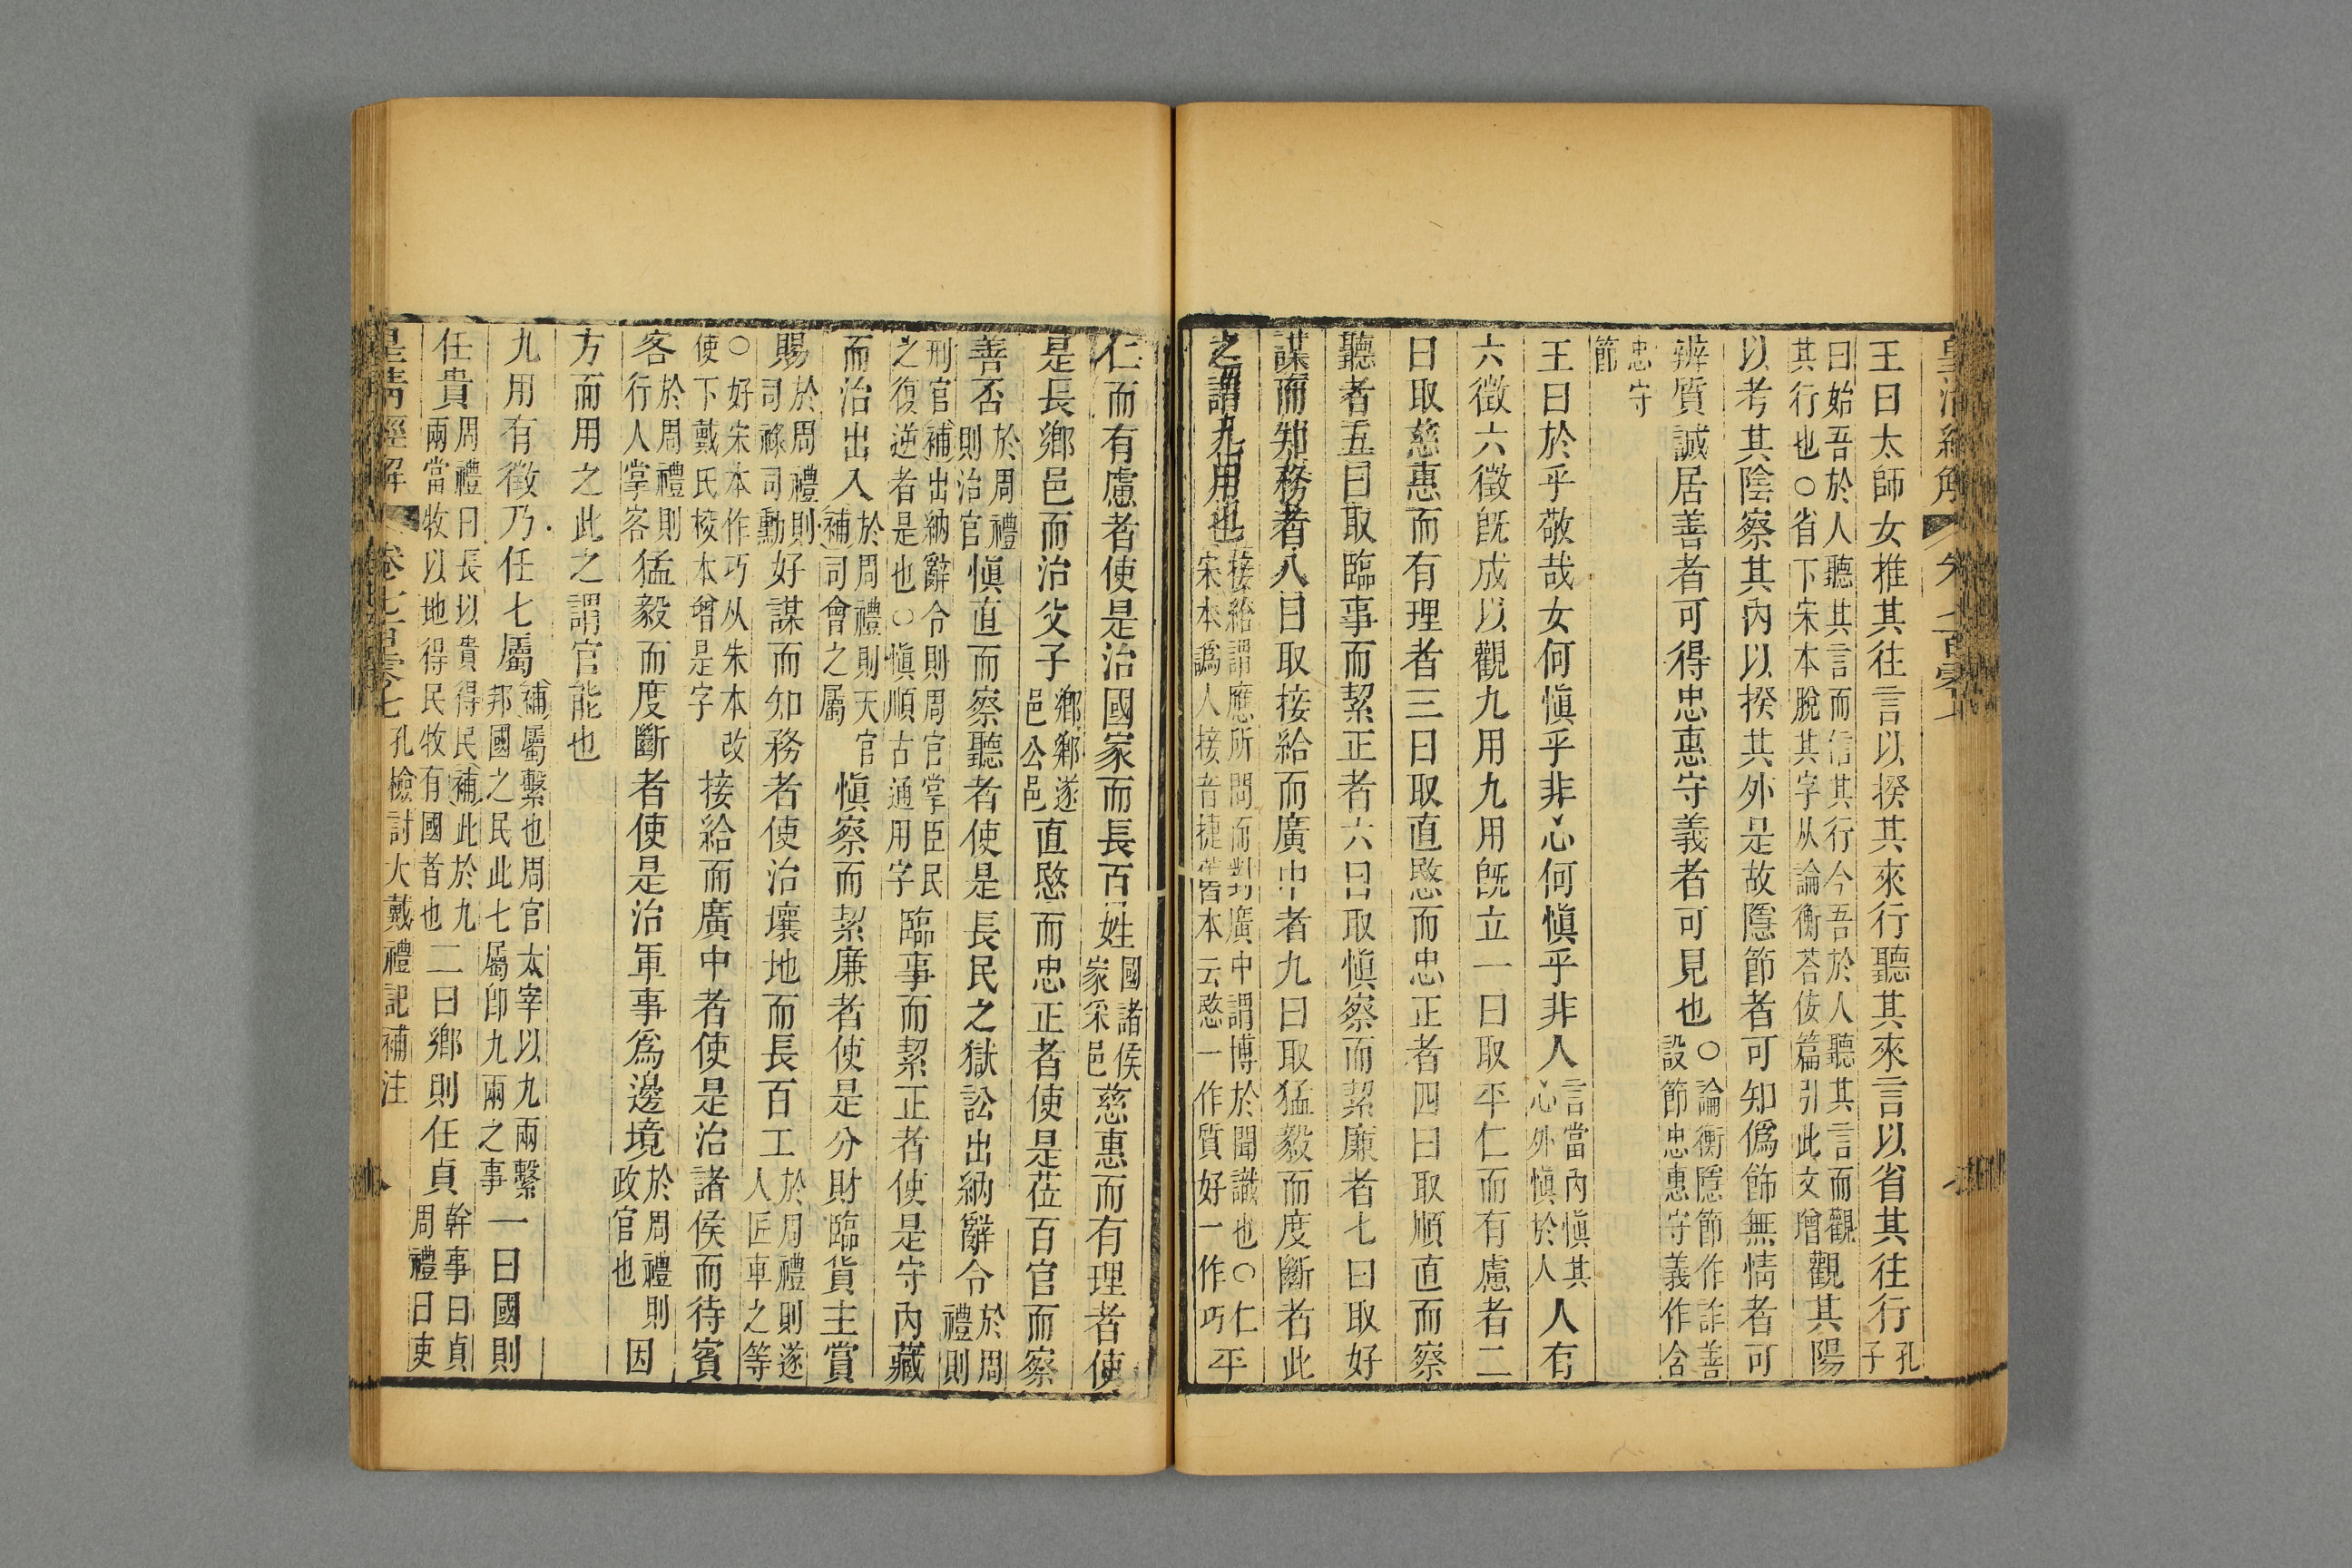 王曰太師女推其往言以揆其來行聽其來言以省其往行孔子
曰始吾於人聽其言而信其行今吾於人聽其言而觀
其行也○省下宋本脫其字从論衡荅佞篇引此文增觀其陽
以考其陰察其內以揆其外是故隱節者可知僞飾無情者可
辨質誠居善者可得忠惠守義者可見也○論衡隱節作詐善
設節忠惠守義作含
忠守
節
王曰於乎敬哉女何愼乎非心何愼乎非人言當內愼其
心外愼於人人有
六徵六徵旣成以觀九用九用旣立一曰取平仁而有慮者二
曰取慈惠而有理者三曰取直愍而忠正者四曰取順直而察
聽者五曰取臨事而絜正者六曰取愼察而絜廉者七曰取好
謀而知務者八曰取接給而廣中者九曰取猛毅而度斷者此
之謂九用也接給謂應所問而對廣中謂博於聞識也○仁平
宋本譌人接音捷舊本云愍一作質好一作巧
仁而有慮者使是治國家而長百姓國諸侯
家采邑慈惠而有理者使
是長鄉邑而治父子鄉鄉遂
邑公邑直愍而忠正者使是莅百官而察
善否於周禮
則治官愼直而察聽者使是長民之獄訟出納辭令於周
禮則
刑官補出納辭令則周官掌臣民
之復逆者是也○愼順古通用字臨事而絜正者使是守內藏
而治出入於周禮則天官
補司會之屬愼察而絜廉者使是分財臨貨主賞
賜於周禮則
司祿司勳好謀而知務者使治壤地而長百工於周禮則遂
人匠車之等
○好宋本作巧从朱本改
使下戴氏校本曾是字接給而廣中者使是治諸侯而待賓
客於周禮則
行人掌客猛毅而度斷者使是治軍事爲邊境於周禮則
政官也因
方而用之此之謂官能也
九用有徵乃任七屬補屬繫也周官太宰以九兩繫
邦國之民此七屬卽九兩之事一曰國則
任貴周禮曰長以貴得民補此於九
兩當牧以地得民牧有國者也二曰鄉則任貞幹事曰貞
周禮曰吏
皇淸經解 卷七百零七 孔檢討大戴禮記補注